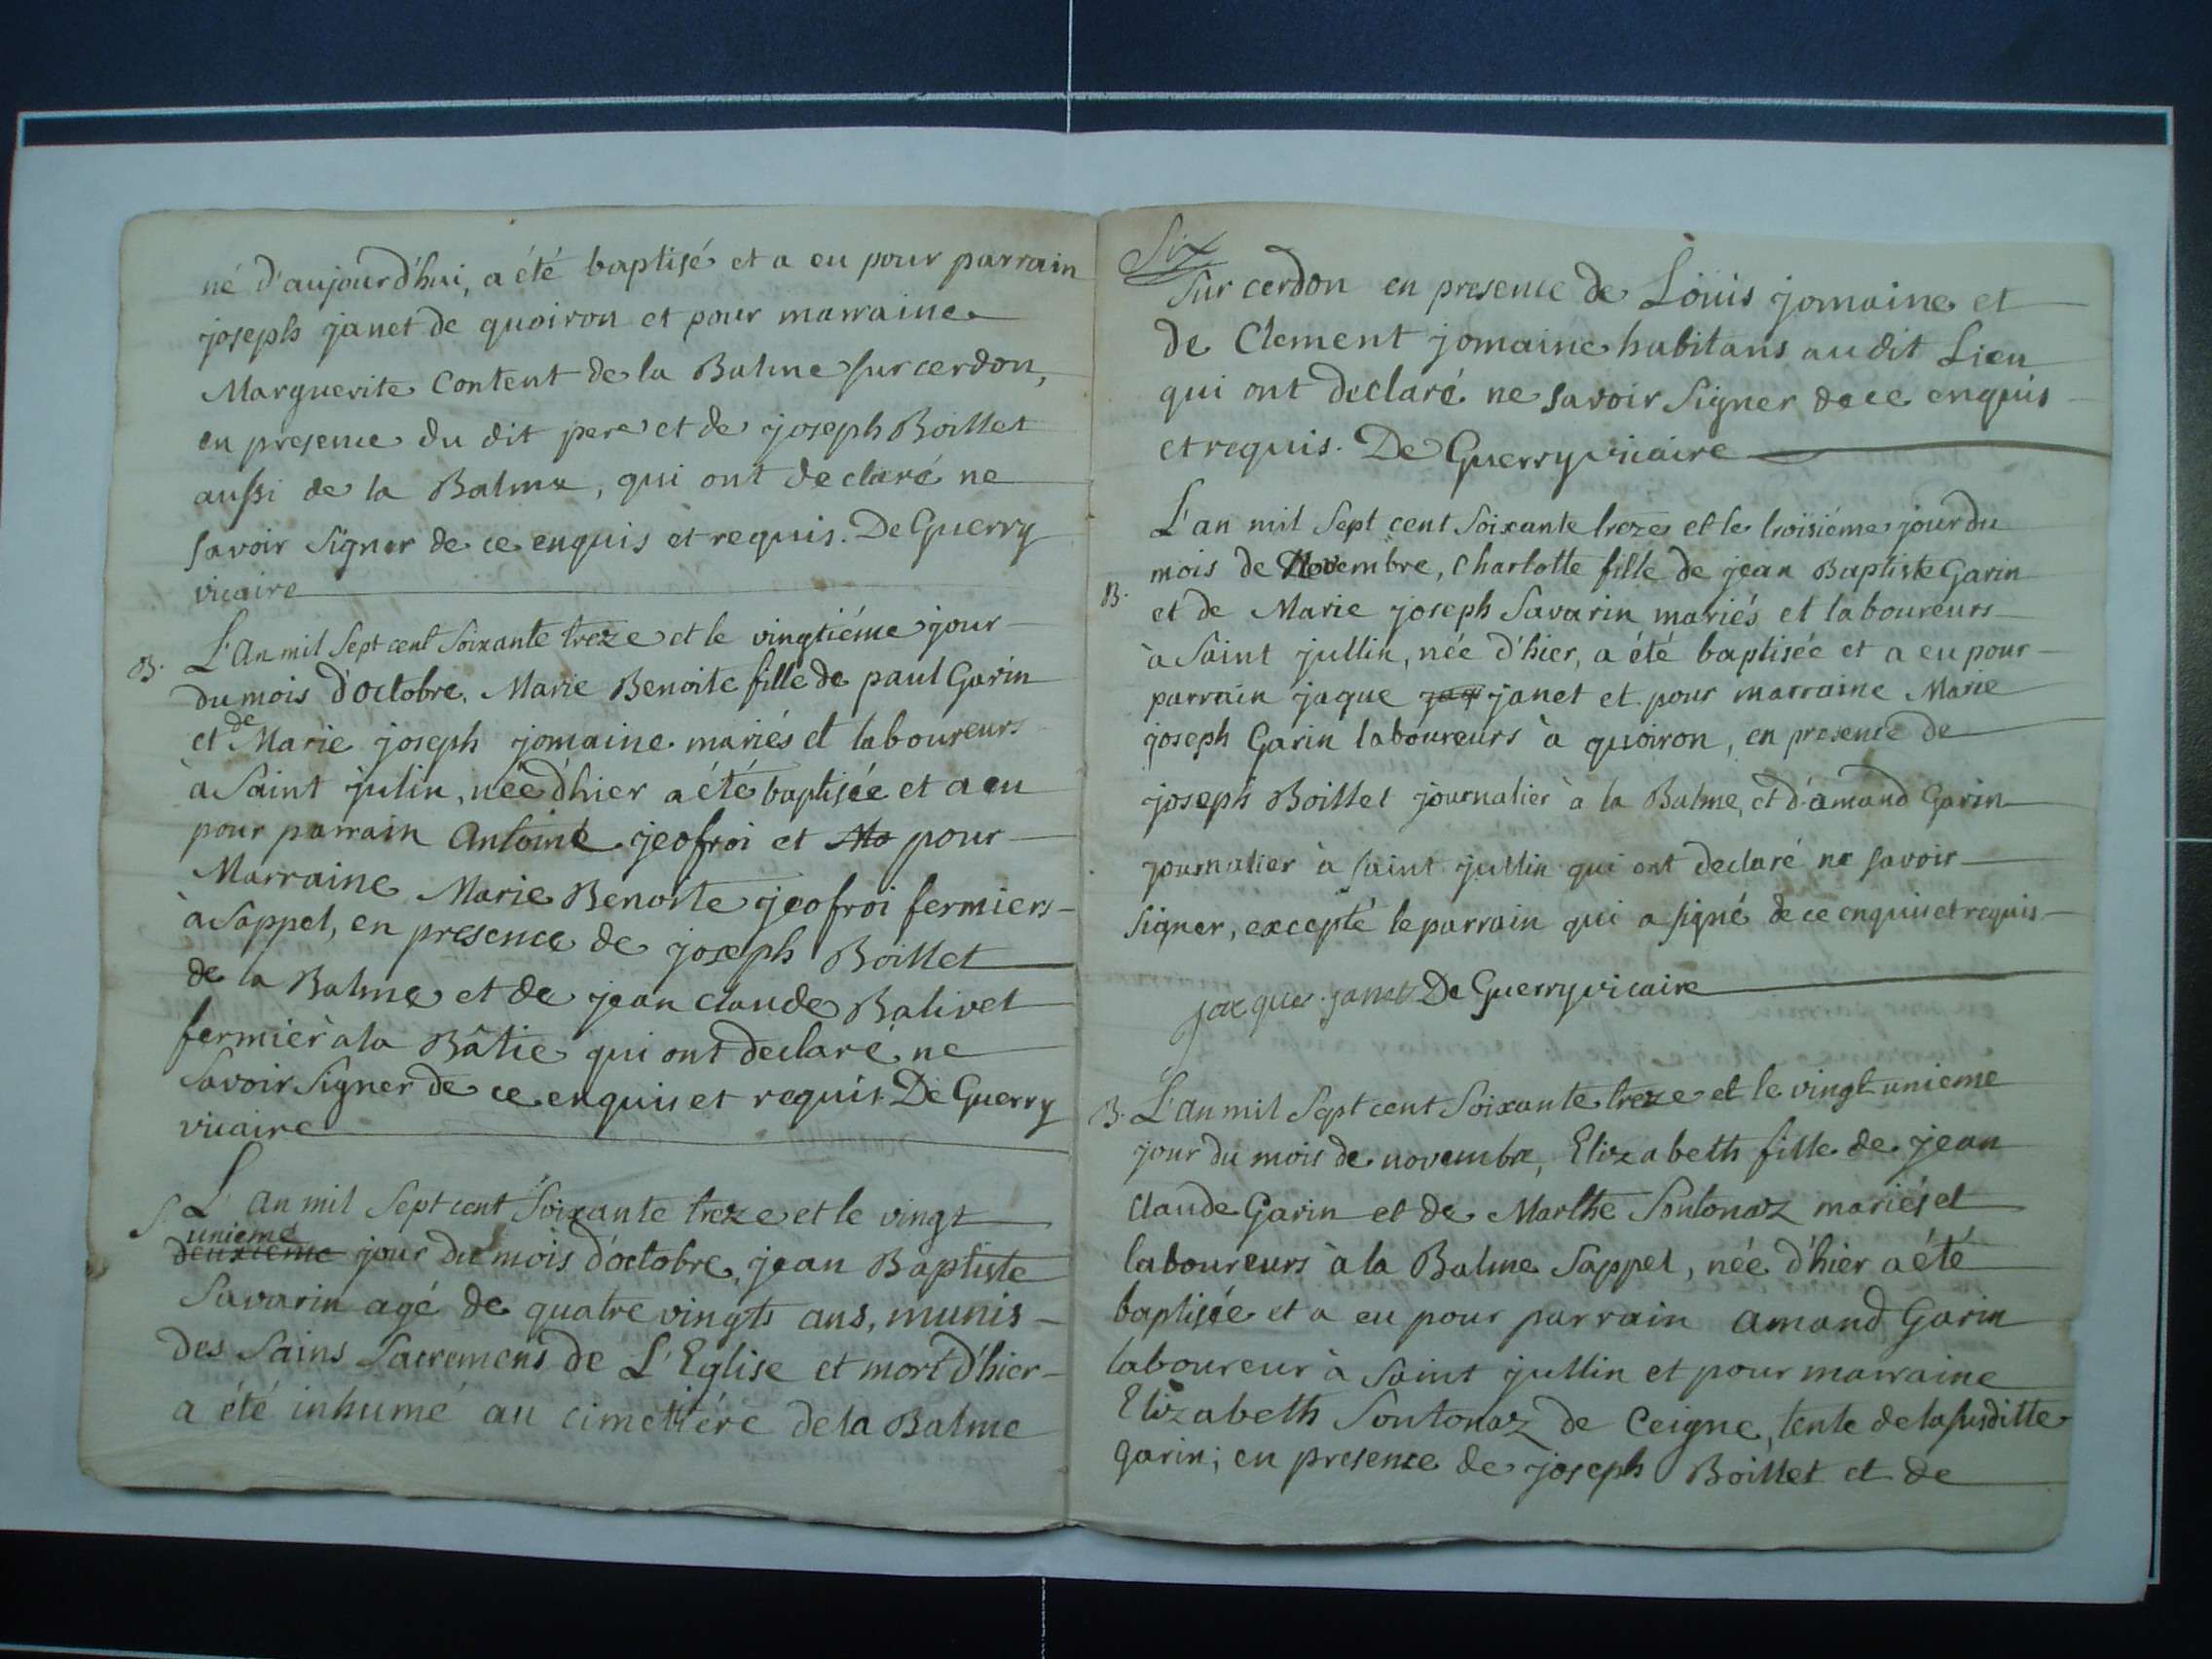 né d'aujourd'hui, a été baptisé et a eu pour parrain
joseph janet de quoiron et pour marraine
Marguerite Content de la Balme sur cerdon,
en presence du dit pere et de joseph Boillet
aussi de la Balme, qui ont declaré ne
savoir signer de ce enquis et requis. De Guerry
vicaire
B. L'an mil sept cent soixante treze et le vingtiéme jour
du mois d'octobre, Marie Benoite fille de paul Garin
et de Marie joseph jomaine mariés et laboureurs
à Saint julin, née d'hier a été baptisée et a eu
pour parrain Antoine jeofroi et Ma pour
Marraine Marie Benoite jeofroi fermiers
à Sappel, en presence de joseph Boillet
de la Balme et de jean claude Balivet
fermier à la Bâtie qui ont declaré ne
savoir signer de ce enquis et requis. De Guerry
vicaire
S L'an mil sept cent soixante treze et le vingt
unieme
deuxieme jour du mois d'octobre, jean Baptiste
Savarin agé de quatre vingts ans, munis
des Sains Sacremens de L'Eglise et mort d'hier
a été inhumé au cimetiére de la Balme
Six
sur cerdon en presence de Loüis jomaine et
de Clement jomaine habitans au dit Lieu
qui ont declaré ne savoir signer de ce enquis
et requis. De Guerry vicaire
L'an mil sept cent soixante treze et le troisiéme jour du
mois de Novembre, Charlotte fille de jean Baptiste Garin
B.
et de Marie joseph Savarin mariés et laboureurs
à Saint jullin, née d'hier, a été baptisée et a eu pour
parrain jaque jaq janet et pour marraine Marie
joseph Garin laboureurs à quoiron, en presence de
joseph Boillet journalier à la Balme, et d'amand Garin
journalier à saint jullin qui ont declaré ne savoir
signer, excepté le parrain qui a signé de ce enquis et requis
jacques janet De Guerry vicaire
B. L'an mil sept cent soixante treze et le vingt unieme
jour du mois de novembre, Elizabeth fille de jean
claude Garin et de Marthe Sontonaz mariés et
laboureurs à la Balme Sappel, née d'hier a été
baptisée et a eu pour parrain amand Garin
laboureur à saint jullin et pour marraine
Elizabeth Sontonaz de Ceigne, tente de la susditte
garin; en presence de joseph Boillet et de